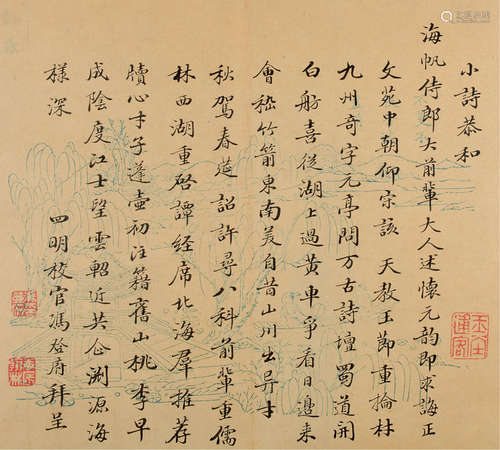 小詩恭和
海帆侍郎大前輩大人述懷元韵即求誨正
文苑中朝仰宋該天教玉節重掄材
九州奇字元亭問万古詩壇蜀道開
白舫喜從湖上過黃車爭看日邊来
會嵇竹箭東南美自昔山川出異才
秋駕春筵詔許尋八科前輩重儒
林西湖重啓譚経席北海羣推荐
牘心才子蓬壷初注籍舊山桃李早
成陰度江士望雲軺近溯源海
樣深 四明校官馮登府拜呈
玉堂逋客